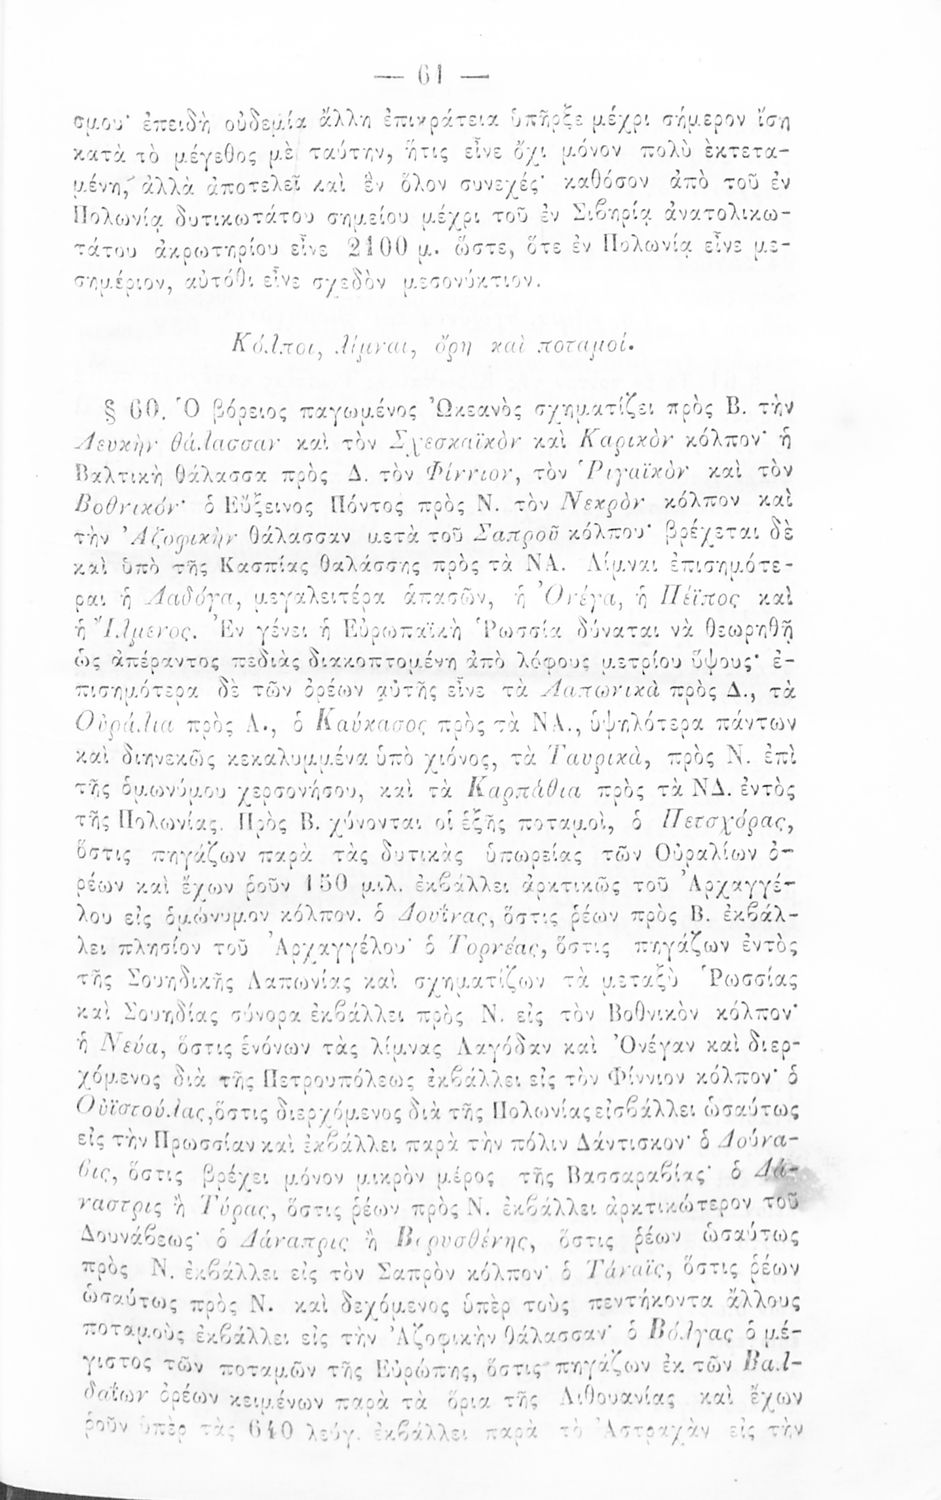 — 61 —
σμου· ἐπειδὴ οὐδεμία ἄλλη ἐπικράτεια ὑπῆρξε μέχρι σήμερον ἴση
κατὰ τὸ μέγεθος μὲ ταύτην, ἥτις εἶνε ὄχι μόνον πολὺ ἐκτετα-
μένη, ἀλλὰ ἀποτελεῖ καὶ ἓν ὅλον συνεχές· καθόσον ἀπὸ τοῦ ἐν
Πολωνίᾳ δυτικωτάτου σημείου μέχρι τοῦ ἐν Σιβηρίᾳ ἀνατολικω-
τάτου ἀκρωτηρίου εἶνε 2100 μ. ὥστε, ὅτε ἐν Πολωνίᾳ εἶνε με-
σημέριον, αὐτόθι εἶνε σχεδὸν μεσονύκτιον.
Κόλποι, λίμναι, ὄρη καὶ ποταμοί.
§ 60. Ὁ βόρειος παγωμένος Ὠκεανὸς σχηματίζει πρὸς Β. τὴν
Λευκὴν θάλασσαν καὶ τὸν Σχεσκαϊκὸν καὶ Καρικὸν κόλπον· ἡ
Βαλτικὴ θάλασσα πρὸς Δ. τὸν Φίννιον, τὸν Ῥιγαϊκὸν καὶ τὸν
Βοθνικόν· ὁ Εὔξεινος Πόντος πρὸς Ν. τὸν Νεκρὸν κόλπον καὶ
τὴν Ἀζοφικὴν θάλασσαν μετὰ τοῦ Σαπροῦ κόλπου· βρέχεται δὲ
καὶ ὑπὸ τῆς Κασπίας θαλάσσης πρὸς τὰ ΝΑ. Λίμναι ἐπισημότε-
ραι ἡ Λαδόγα, μεγαλειτέρα ἁπασῶν, ἡ Ὀνέγα, ἡ Πέϊπος καὶ
ἡ Ἴλμενος. Ἐν γένει ἡ Εὐρωπαϊκὴ Ῥωσσία δύναται νὰ θεωρηθῇ
ὡς ἀπέραντος πεδιὰς διακοπτομένη ἀπὸ λόφους μετρίου ὕψους· ἐ-
πισημότερα δὲ τῶν ὀρέων αὐτῆς εἶνε τὰ Λαπωνικὰ πρὸς Δ., τὰ
Οὐράλια πρὸς Α., ὁ Καύκασος πρὸς τὰ ΝΑ., ὑψηλότερα πάντων
καὶ διηνεκῶς κεκαλυμμένα ὑπὸ χιόνος, τὰ Ταυρικὰ, πρὸς Ν. ἐπὶ
τῆς ὁμωνύμου χερσονήσου, καὶ τὰ Καρπάθια πρὸς τὰ ΝΔ. ἐντὸς
τῆς Πολωνίας. Πρὸς Β. χύνονται οἱ ἑξῆς ποταμοὶ, ὁ Πετσχόρας,
ὅστις πηγάζων παρὰ τὰς δυτικὰς ὑπωρείας τῶν Οὐραλίων ὀ-
ρέων καὶ ἔχων ῥοῦν 150 μιλ. ἐκβάλλει ἀρκτικῶς τοῦ Ἀρχαγγέ-
λου εἰς ὁμώνυμον κόλπον. ὁ Δουΐνας, ὅστις ῥέων πρὸς Β. ἐκβάλ-
λει πλησίον τοῦ Ἀρχαγγέλου· ὁ Τορνέας, ὅστις πηγάζων ἐντὸς
τῆς Σουηδικῆς Λαπωνίας καὶ σχηματίζων τὰ μεταξὺ Ῥωσσίας
καὶ Σουηδίας σύνορα ἐκβάλλει πρὸς Ν. εἰς τὸν Βοθνικὸν κόλπον·
ἡ Νεύα, ὅστις ἑνόνων τὰς λίμνας Λαγόδαν καὶ Ὀνέγαν καὶ διερ-
χόμενος διὰ τῆς Πετρουπόλεως ἐκβάλλει εἰς τὸν Φίννιον κόλπον· ὁ
Οὐϊστούλας, ὅστις διερχόμενος διὰ τῆς Πολωνίας εἰσβάλλει ὡσαύτως
εἰς τὴν Πρωσσίαν καὶ ἐκβάλλει παρὰ τὴν πόλιν Δάντισκον· ὁ Δούνα-
βις, ὅστις βρέχει μόνον μικρὸν μέρος τῆς Βασσαραβίας· ὁ Δά-
ναστρις ἢ Τύρας, ὅστις ῥέων πρὸς Ν. ἐκβάλλει ἀρκτικώτερον τοῦ
Δουνάβεως· ὁ Δάναπρις ἢ Βορυσθένης, ὅστις ῥέων ὡσαύτως
πρὸς Ν. ἐκβάλλει εἰς τὸν Σαπρὸν κόλπον· ὁ Τάναϊς, ὅστις ῥέων
ὡσαύτως πρὸς Ν. καὶ δεχόμενος ὑπὲρ τοὺς πεντήκοντα ἄλλους
ποταμοὺς ἐκβάλλει εἰς τὴν Ἀζοφικὴν θάλασσαν· ὁ Βόλγας ὁ μέ-
γιστος τῶν ποταμῶν τῆς Εὐρώπης, ὅστις πηγάζων ἐκ τῶν Βαλ-
δαΐων ὀρέων κειμένων παρὰ τὰ ὅρια τῆς Λιθουανίας καὶ ἔχων
ῥοῦν ὑπὲρ τὰς 640 λεύγ. ἐκβάλλει παρὰ τὸ Ἀστραχὰν εἰς τὴν